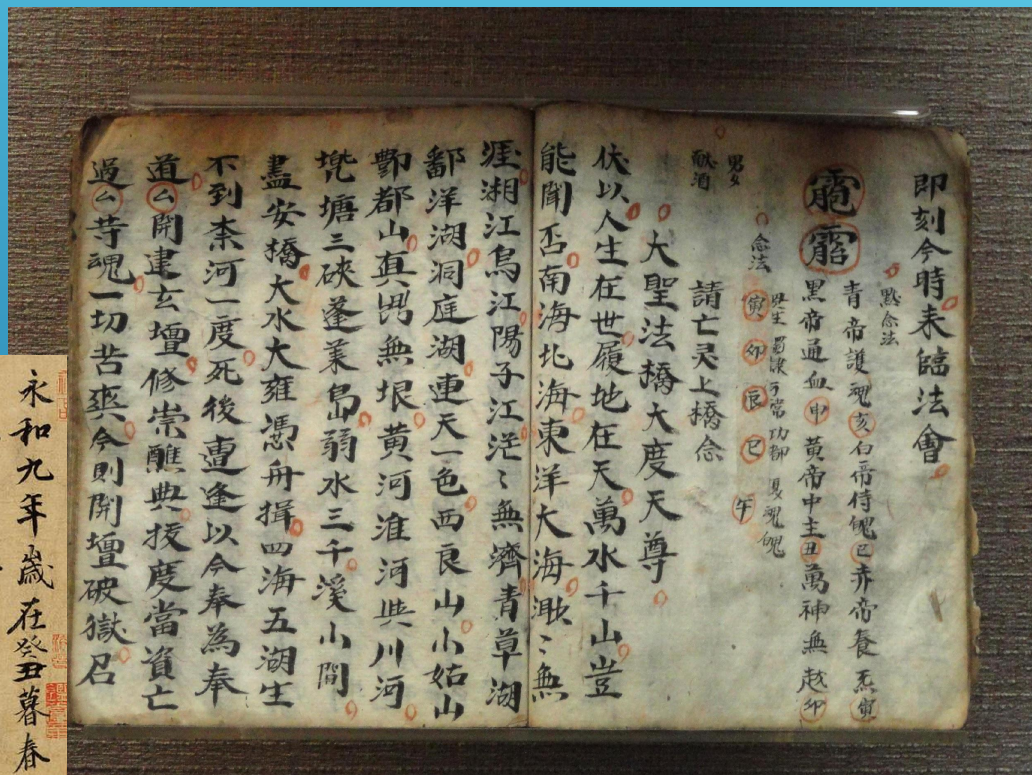 即刻今時来臨法會
黙念法
青帝護魂亥白帝侍魄巳赤帝養炁寅
黑帝通血申黃帝中主丑萬神無越卯
念法
寅卯辰巳午
男女
酌酒
請亡灵上橋念
大聖法橋大度天尊
伏以人生在世履地在天萬水千山豈
能聞否南海北海東洋大海渺〻無
涯湘江烏江陽子江茫〻無濟青草湖
鄱洋湖洞庭湖連天一色西良山小姑山
酆都山真岃無垠黄河淮河與川河
塘三硤蓬萊島弱水三千溪小間
盡安橋大水大雍憑舟揖四海五湖生
不到柰河一度死後遭逢以今奉為奉
道厶開建玄壇修崇醮典授度當資亡
過厶等魂一切苦爽今則開壇破獄召
永和九年歲在癸丑暮春